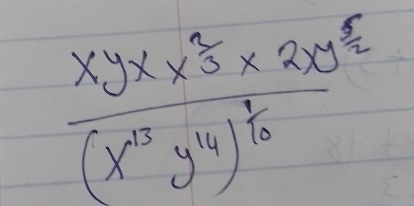 xy × x^{2/3} × 2xy^{5/2}
(x^{13} y^{14})^{1/10}